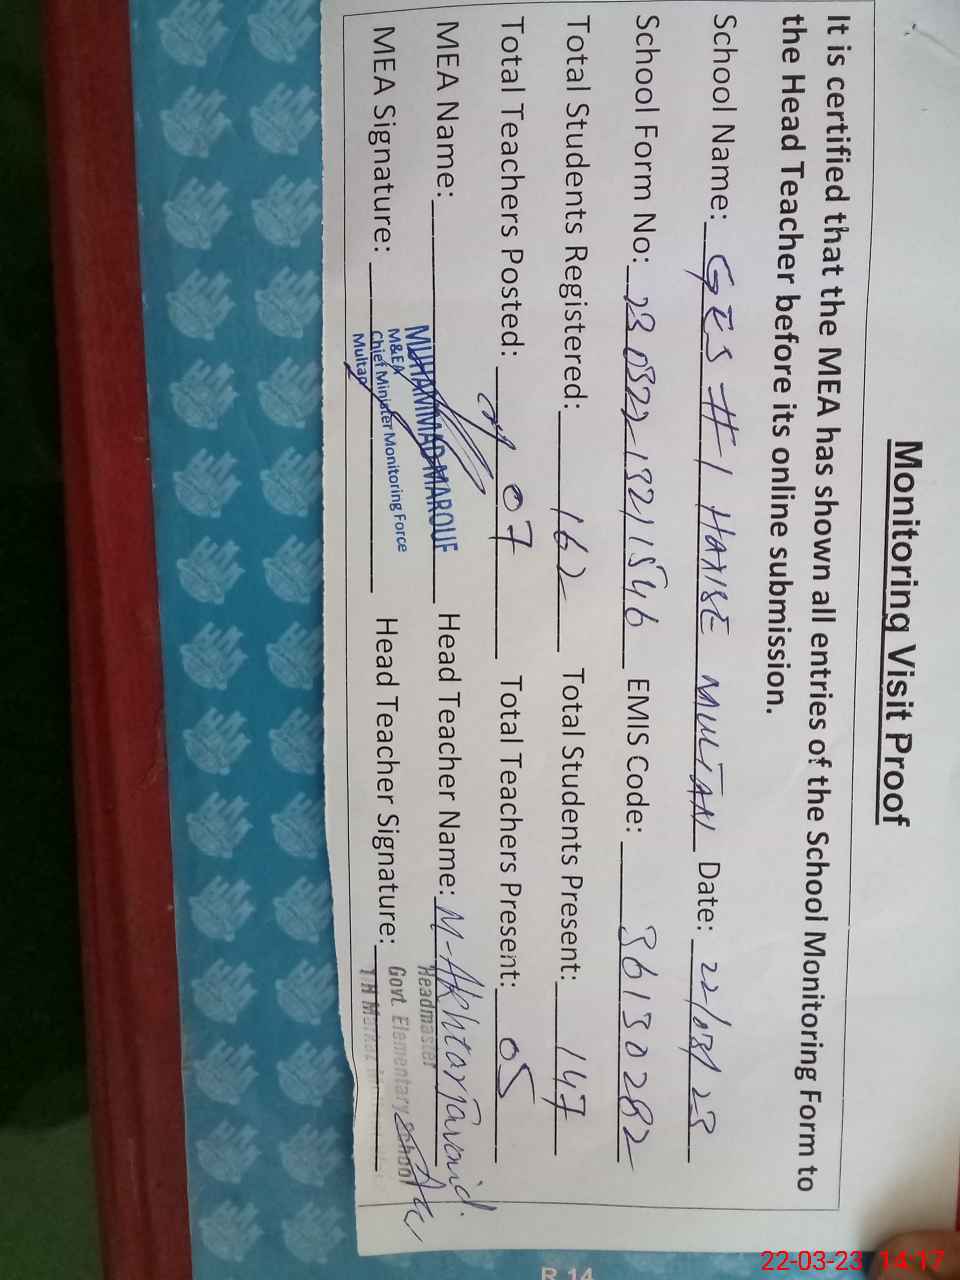 Monitoring Visit Proof
It is certified that the MEA has shown all entries of the School Monitoring Form to
the Head Teacher before its online submission.
School Name: GES #1 MULTAN Date: 22/03/23
School Form No: EMIS Code: 36130282
Total Students Registered: 162 Total Students Present: 147
Total Teachers Posted: 07 Total Teachers Present: 05
MEA Name: MUHAMMAD MAROUF Head Teacher Name: M-Akhtar Javaid.
M&EA Headmaster
MEA Signature: Chief Minister Monitoring Force Head Teacher Signature: Govt. Elementary School
Multan
R 14
22-03-23 14:17